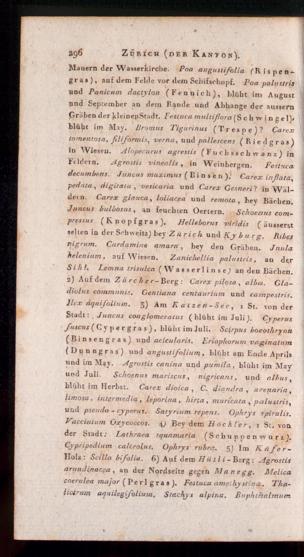 296 ZÜRICH (DER KANTON).
Mauern der Wasserkirche. Poa angustifolia (Rispen-
gras), auf dem Felde vor dem Schifschopf. Poa palustris
und Panicum dactylon (Fennich), blüht im August
und September an dem Rande und Abhange der äussern
Gräben der kleinen Stadt. Festuca multiflora (Schwingel)
blüht im May. Bromus Tigurinus (Trespe)? Carex
tomentosa, filiformis, verna, und pallescens (Riedgras)
in Wiesen. Alopecurus agrestis (Fuchsschwanz) in
Feldern. Agrostis vinealis, in Weinbergen. Festuca
decumbens. Juncus maximus (Binsen). Carex inflata,
pedata, digitata, vesicaria und Carex Gesneri? in Wäl-
dern. Carex glauca, loliacea und remota, bey Bächen.
Juncus bulbosus, an feuchten Oertern. Schoenus com-
pressus (Knopfgras). Helleborus viridis (äusserst
selten in der Schweitz) bey Zürich und Kyburg. Ribes
nigrum. Cardamine amara, bey den Gräben. Inula
helenium, auf Wiesen. Zanichellia palustris, an der
Sihl. Lemna trisulca (Wasserlinse) an den Bächen.
2) Auf dem Zürcher-Berg: Carex pilosa, alba. Gla-
diolus communis. Gentiana centaurium und campestris.
Ilex aquifolium. 3) Am Katzen-See, 1 St. von der
Stadt: Juncus conglomeratus (blüht im Juli). Cyperus
fuscus (Cypergras), blüht im Juli. Scirpus boeothryon
(Binsengras) und acicularis. Eriophorum vaginatum
(Dunngras) und angustifolium, blüht am Ende Aprils
und im May. Agrostis canina und pumila, blüht im May
und Juli. Schoenus mariscus, nigricans, und albus,
blüht im Herbst. Carex dioica, C. diandra, arenaria,
limosa, intermedia, leporina, hirta, muricata, palustris,
und pseudo-cyperus. Satyrium repens. Ophrys spiralis.
Vaccinium Oxycoccos. 4) Bey dem Hockler, 1 St. von
der Stadt: Lathraea squamaria (Schuppenwurz).
Cypripedium calceolus. Ophrys rubra. 5) Im Käfer-
Holz: Scilla bifolia. 6) Auf dem Hütli-Berg: Agrostis
arundinacea, an der Nordseite gegen Manegg. Melica
coerulea major (Perlgras). Festuca amethystina. Tha-
lictrum aquilegifolium. Stachys alpina. Buphthalmum